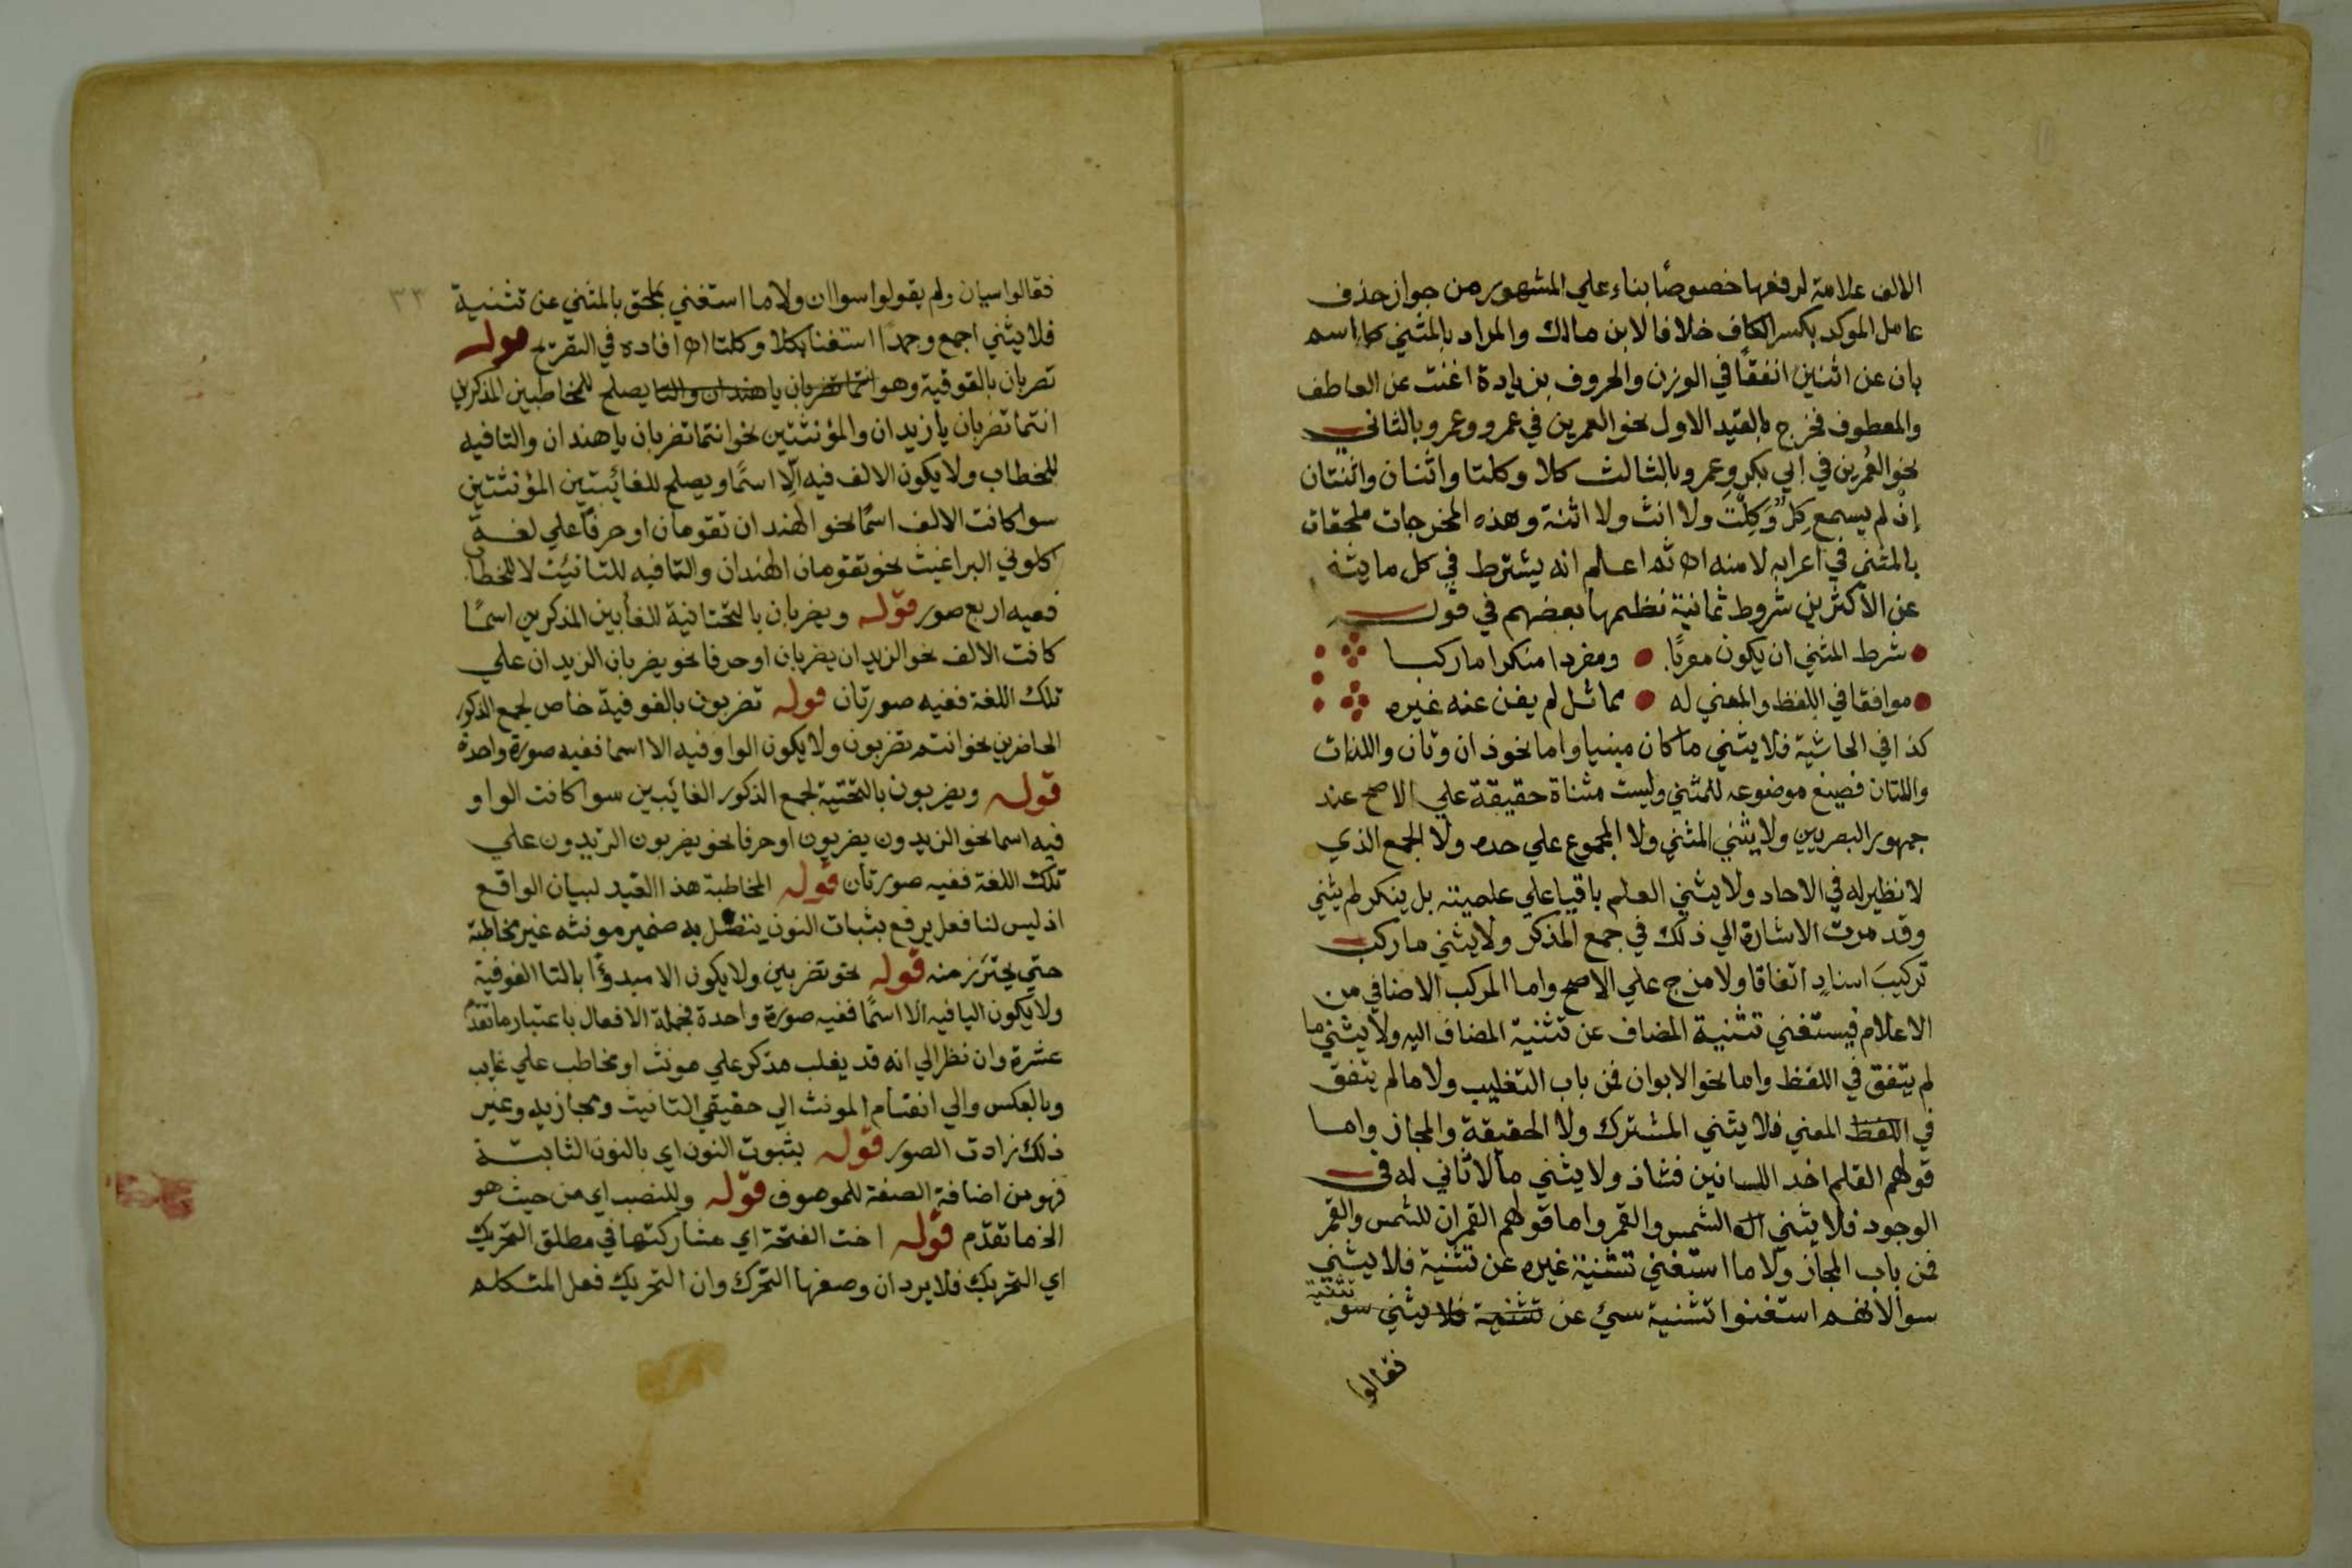 الالف علامة لرفعها خصوصًا بناء علي المشهور من جواز حذف
عامل الموكد بكسر الكاف خلافا لابن مالك والمراد بالمثني كل اسم
بان عن اثنين اتفقا في الوزن والحروف بزيادة اغنت عن العاطف
والمعطوف فخرج بالقيد الاول نحو العمرين في عمرو وعمر وبالثاني
نحو العُمرين في ابي بكر وعمر وبالثالث كلا وكلتا واثنان واثنتان
إذ لم يسمع كِل وَكِلْتَ ولا اثن ولا اثنة وهذه المخرجات ملحقات
بالمثني في اعرابه لا منه اه ثم اعلم انه يشترط في كل ما يثني
عن الأكثرين شروط ثمانية نظمها بعضهم في قوله
شرط المثني ان يكون معربًا ومفردا منكرا ما ركبا
موافقا في اللفظ والمعني له مماثل لم يغن عنه غيره
كذا في الحاشية فلا يثني ما كان مبنيا واما نحو ذان وتان واللذان
واللتان فصيغ موضوعه للمثني وليست مثناة حقيقة علي الاصح عند
جمهور البصريين ولا يثني المثني ولا المجموع علي حده ولا الجمع الذي
لا نظير له في الاحاد ولا يثني العلم باقيا علي علميته بل ينكر ثم يثني
وقد مرت الاشارة الي ذلك في جمع المذكر ولا يثني ما ركب
تركيبَ اسنادٍ اتفاقا ولا مزج علي الاصح واما المركب الاضافي من
الاعلام فيستغني تثنية المضاف عن تثنية المضاف اليه ولا يثني ما
لم يتفق في اللفظ واما نحو الابوان فمن باب التغليب ولا ما لم يتفق
في اللفظ المعني فلا يثني المشترك ولا الحقيقة والمجاز واما
قولهم القلم احد اللسانين فشاذ ولا يثني ما لا ثاني له في
الوجود فلا يثني الشمس والقمر واما قولهم القمران للشمس والقمر
فمن باب المجاز ولا ما استغني تثنية غيره عن تثنية فلا يثني
سوا لانهم استغنوا تثنية سي عن تثنية فلا يثني سو
تثنية
فقالوا
فقالوا سيان ولم يقولوا سواان ولا ما استغني بملحق بالمثني عن تثنية ٣٣
فلا يثني اجمع وجمعا استغنا بكلا وكلتا اه افاده في التصريح قوله
تضربان بالفوقية وهو انتما تضربان يا هندان والتا يصلح للمخاطبين المذكرين
انتما تضربان يا زيدان والمؤنثتين نحو انتما تضربان يا هندان والتا فيه
للخطاب ولا يكون الالف فيه الّا اسمًا ويصلح للغائبتين المؤنثتين
سوا كانت الالف اسمًا نحو الهندان تقومان او حرفًا علي لغة
اكلوني البراغيث نحو تقومان الهندان والتا فيه للتانيث لا للخطاب
ففيه اربع صور قوله ويضربان بالتحتانية للغأبين المذكرين اسمًا
كانت الالف نحو الزيدان يضربان او حرفا نحو يضربان الزيدان علي
تلك اللغة ففيه صورتان قوله تضربون بالفوقية خاص لجمع الذكور
الحاضرين نحو انتم تضربون ولا يكون الواو فيه الا اسما ففيه صورة واحدة
قوله ويضربون بالتحتية لجمع الذكور الغائبين سوا كانت الواو
فيه اسما نحو الزيدون يضربون او حرفا نحو يضربون الزيدون علي
تلك اللغة ففيه صورتان قوله المخاطبة هذا القيد لبيان الواقع
اذ ليس لنا فعل يرفع بثبات النون يتصل به ضمير مونثه غير مخاطبة
حتي يحترز منه قوله نحو تضربين ولا يكون الا مبدوًا بالتا الفوقية
ولا يكون اليا فيه الّا اسمًا ففيه صورة واحدة فجملة الافعال باعتبار ما تقدم
عشرة وان نظر الي انه قد يغلب مذكر علي مونث او مخاطب علي غايب
وبالعكس والي انقسام المونث الي حقيقي التانيث ومجازيه وغير
ذلك زادت الصور قوله بثبوت النون اي بالنون الثابتة
فهو من اضافة الصفة للموصوف قوله وللنصب اي من حيث هو
الخ ما تقدم قوله اخت الفتحة اي مشاركتها في مطلق التحريك
اي التحريك فلا يرد ان وصفها التحرك وان التحريك فعل المتكلم